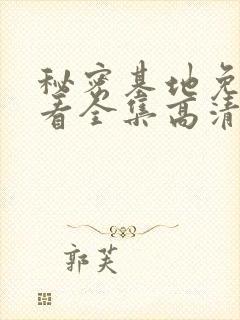 秘密基地免
看全集高清
郭芙